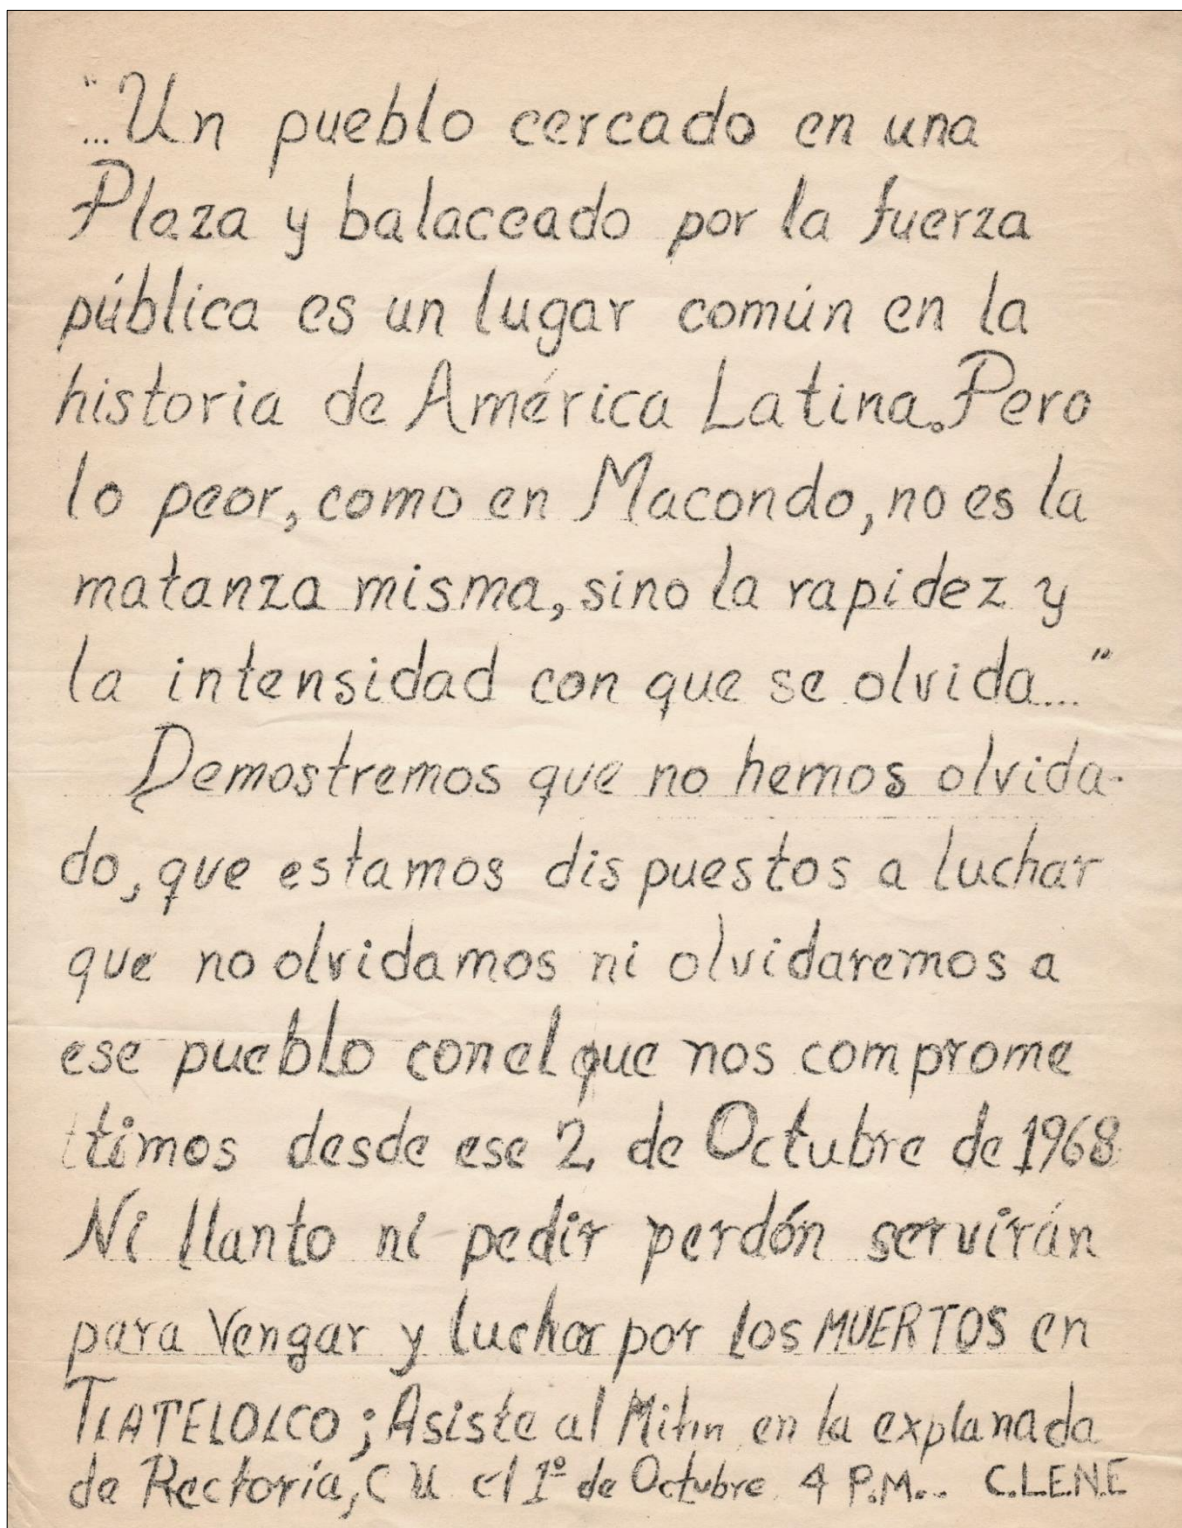 "...Un pueblo cercado en una
Plaza y balaceado por la fuerza
pública es un lugar común en la
historia de América Latina. Pero
lo peor, como en Macondo, no es la
matanza misma, sino la rapidez y
la intensidad con que se olvida..."
Demostremos que no hemos olvida-
do, que estamos dispuestos a luchar
que no olvidamos ni olvidaremos a
ese pueblo con el que nos comprome
ttimos desde ese 2 de Octubre de 1968
Ni llanto ni pedir perdón servirán
para Vengar y luchar por los MUERTOS en
TLATELOLCO; Asiste al Mitin en la explanada
de Rectoría, C U el 1º de Octubre 4 P.M.. C.L.E.N.E